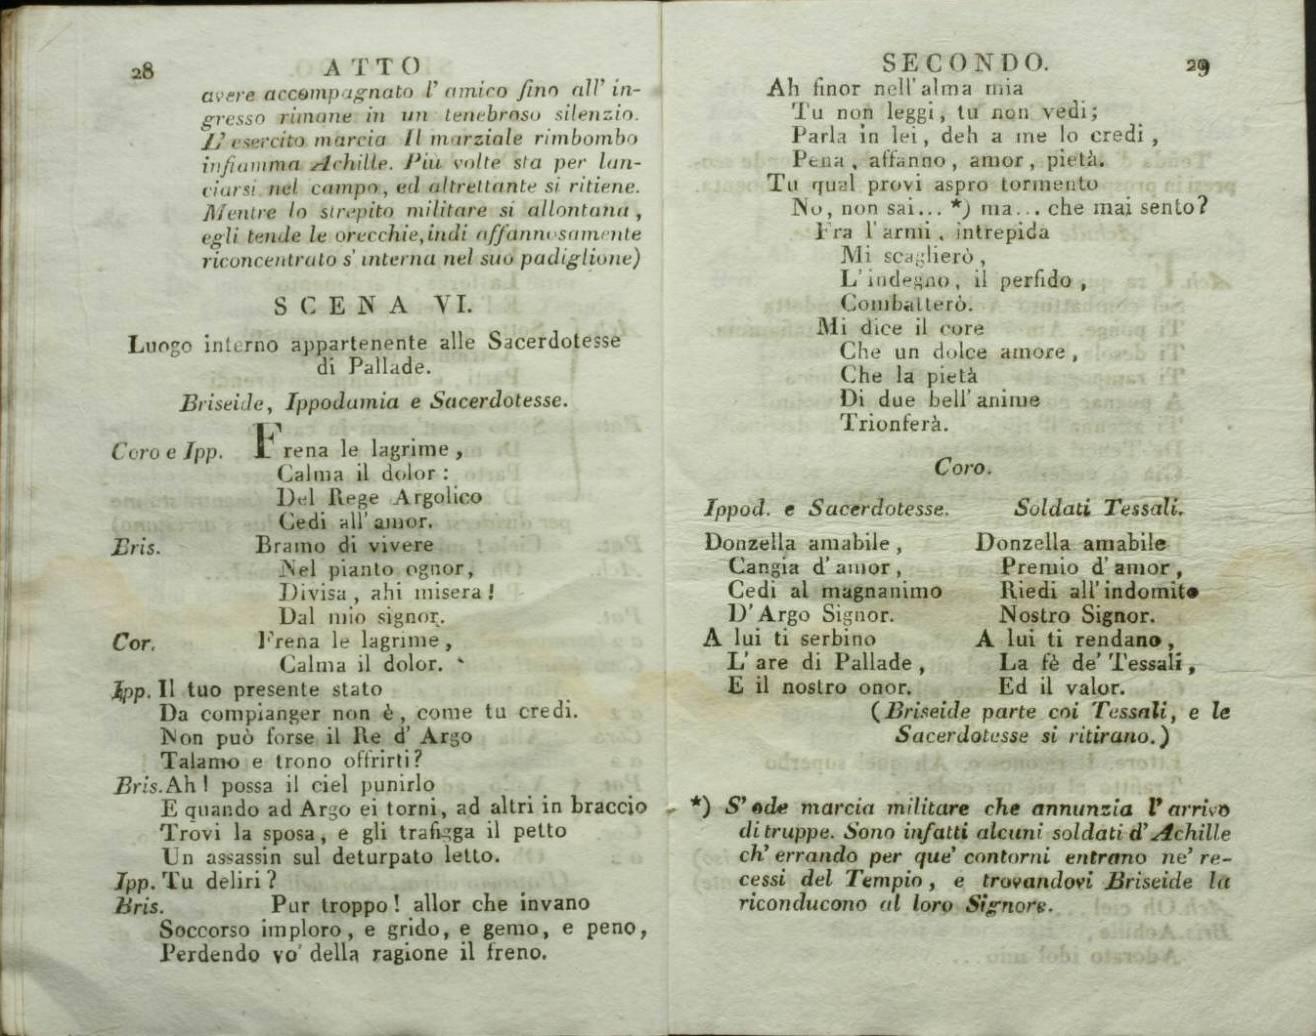 28
ATTO
avere accompagnato l' amico fino all' in-
gresso rimane in un tenebroso silenzio.
L' esercito marcia Il marziale rimbombo
infiamma Achille. Più volte sta per lan-
ciarsi nel campo, ed altrettante si ritiene.
Mentre lo strepito militare si allontana,
egli tende le orecchie, indi affannosamente
riconcentrato s' interna nel suo padiglione)
SCENA VI.
Luogo interno appartenente alle Sacerdotesse
di Pallade.
Briseide, Ippodamia e Sacerdotesse.
Coro e Ipp. Frena le lagrime,
Calma il dolor:
Del Rege Argolico
Cedi all' amor.
Bris. Bramo di vivere
Nel pianto ognor,
Divisa, ahi misera!
Dal mio signor.
Cor. Frena le lagrime,
Calma il dolor.
Ipp. Il tuo presente stato
Da compianger non è, come tu credi.
Non può forse il Re d' Argo
Talamo e trono offrirti?
Bris. Ah! possa il ciel punirlo
E quando ad Argo ei torni, ad altri in braccio
Trovi la sposa, e gli trafigga il petto
Un assassin sul deturpato letto.
Ipp. Tu deliri?
Bris. Pur troppo! allor che invano
Soccorso imploro, e grido, e gemo, e peno,
Perdendo vo' della ragione il freno.
SECONDO.
29
Ah finor nell' alma mia
Tu non leggi, tu non vedi;
Parla in lei, deh a me lo credi,
Pena, affanno, amor, pietà.
Tu qual provi aspro tormento
No, non sai... *) ma... che mai sento?
Fra l' armi, intrepida
Mi scaglierò,
L' indegno, il perfido,
Combatterò.
Mi dice il core
Che un dolce amore,
Che la pietà
Di due bell' anime
Trionferà.
Coro.
Ippod. e Sacerdotesse. Soldati Tessali.
Donzella amabile, Donzella amabile
Cangia d' amor, Premio d' amor,
Cedi al magnanimo Riedi all' indomito
D' Argo Signor. Nostro Signor.
A lui ti serbino A lui ti rendano,
L' are di Pallade, La fè de' Tessali,
E il nostro onor. Ed il valor.
(Briseide parte coi Tessali, e le
Sacerdotesse si ritirano.)
*) S' ode marcia militare che annunzia l' arrivo
di truppe. Sono infatti alcuni soldati d' Achille
ch' errando per que' contorni entrano ne' re-
cessi del Tempio, e trovandovi Briseide la
riconducono al loro Signore.